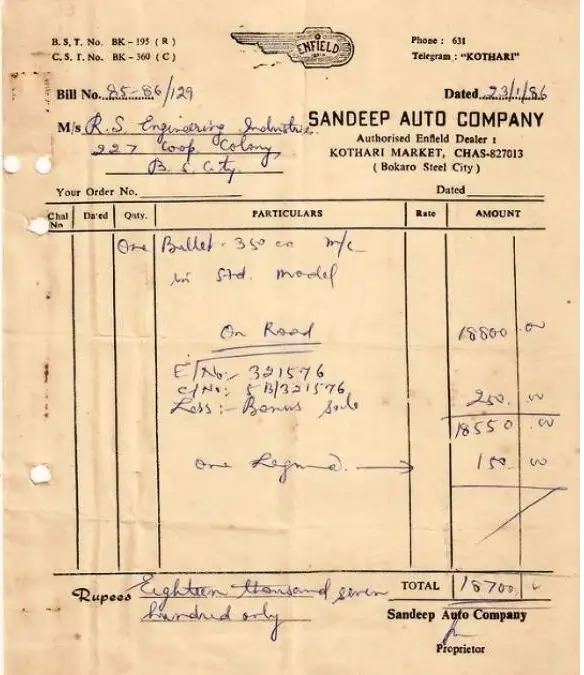 B. S. T. No. BK - 195 ( R )
C. S. T. No. BK - 360 ( C )
ENFIELD
INDIA
Phone : 631
Telegram : “KOTHARI”
Bill No. 85-86/129
Dated 23/1/86
M/s R.S. Engineering Industries
227 Coop Colony,
B. S. City
SANDEEP AUTO COMPANY
Authorised Enfield Dealer :
KOTHARI MARKET, CHAS-827013
( Bokaro Steel City )
Your Order No.
Dated
Chal No Dated Qnty. PARTICULARS Rate AMOUNT
One Bullet - 350 cc m/c
in Std. model
On Road 18800 . 00
E/No:- 321576
C/No:- 5B/321576
Less :- Bonus 250 . 00
18550 . 00
One Legguard. → 150 00
TOTAL 18700
Rupees Eighteen thousand seven
hundred only
Sandeep Auto Company
Proprietor